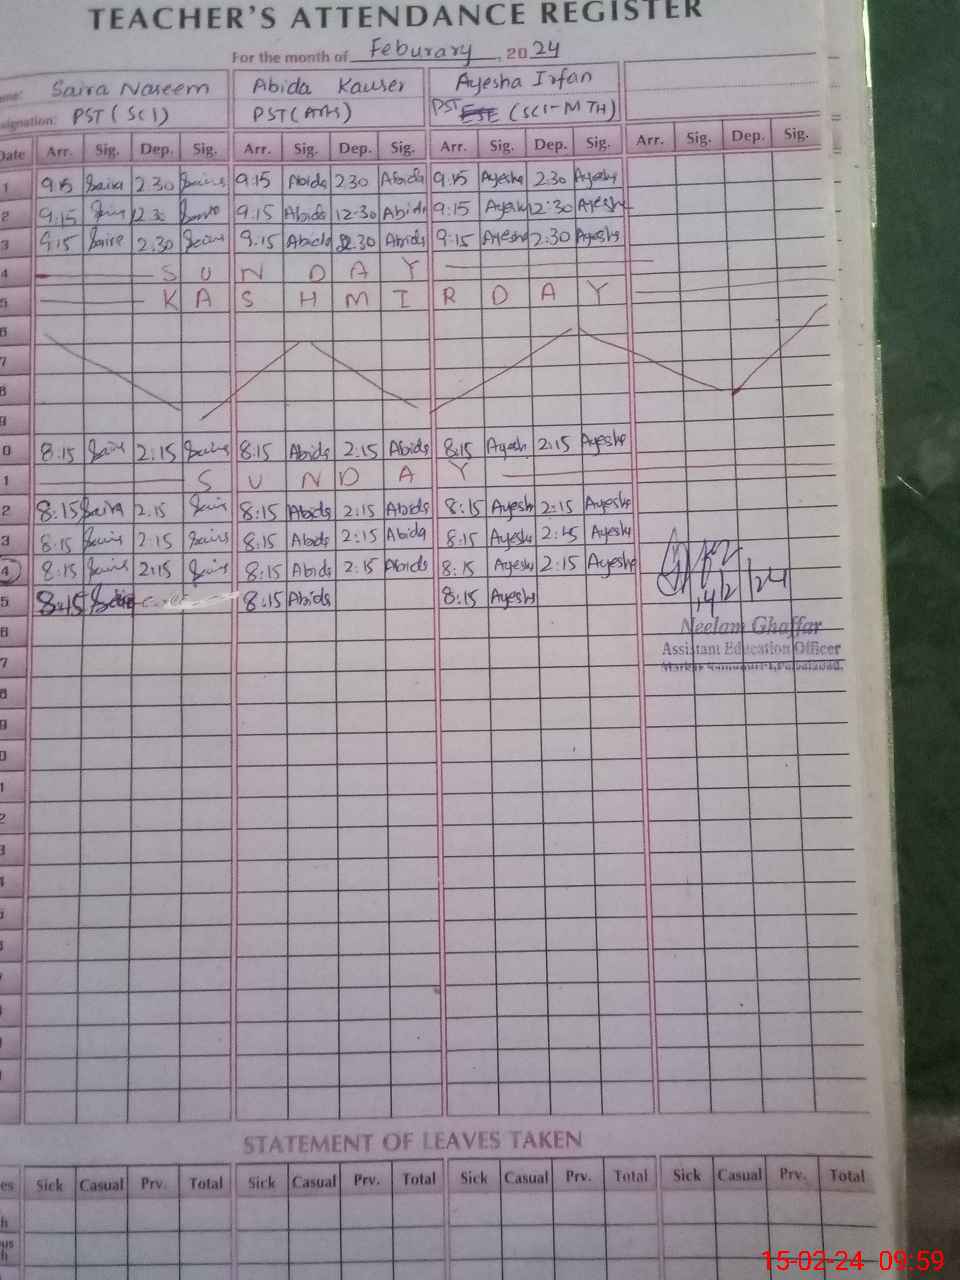 TEACHER'S ATTENDANCE REGISTER
For the month of Feburary, 2024
Saira Naseem Abida Kauser Ayesha Irfan
signation: PST (SCI) PST (Arts) PST (SCI-MTH)
Date Arr. Sig. Dep. Sig. Arr. Sig. Dep. Sig. Arr. Sig. Dep. Sig. Arr. Sig. Dep. Sig.
1 9.15 Saira 2.30 Saira 9.15 Abida 2.30 Abida 9.15 Ayesha 2.30 Ayesha
2 9.15 Saira 12.30 Saira 9.15 Abida 12.30 Abida 9.15 Ayesha 12.30 Ayesha
3 9.15 Saira 2.30 Saira 9.15 Abida 2.30 Abida 9.15 Ayesha 2:30 Ayesha
4 SUNDAY
5 KASHMIR DAY
6
7
8
9
0 8:15 Saira 2:15 Saira 8:15 Abida 2:15 Abida 8:15 Ayesha 2:15 Ayesha
1 SUNDAY
2 8:15 Saira 2.15 Saira 8:15 Abida 2:15 Abida 8:15 Ayesha 2:15 Ayesha
3 8:15 Saira 2:15 Saira 8:15 Abida 2:15 Abida 8:15 Ayesha 2:15 Ayesha
4 8:15 Saira 2:15 Saira 8:15 Abida 2:15 Abida 8:15 Ayesha 2:15 Ayesha
5 8:15 8:15 Abida 8:15 Ayesha
14/2/24
Neelam Ghaffar
Assistant Education Officer
6
7
8
9
0
1
2
3
STATEMENT OF LEAVES TAKEN
es Sick Casual Prv. Total Sick Casual Prv. Total Sick Casual Prv. Total Sick Casual Prv. Total
15-02-24 09:59